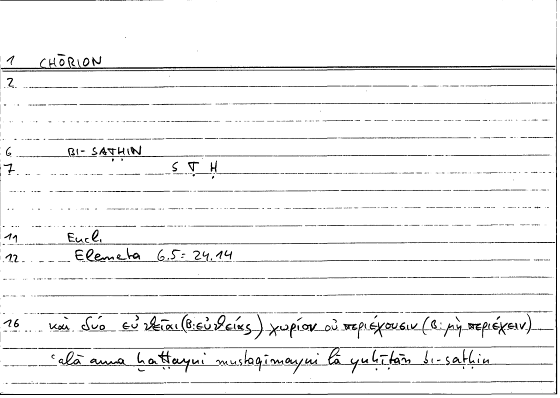 1 CHŌRION
2
6 BI-SAṬḤIN
7 S Ṭ Ḥ
11 Eucl.
12 Elementa 6,5 = 24,14
16 καὶ δύο εὐθεῖαι (B: εὐθείας) χωρίον οὐ περιέχουσιν (B: μὴ περιέχειν)
ʿalā anna ḫaṭṭayni mustaqīmayni lā yuḥīṭān bi-saṭḥin